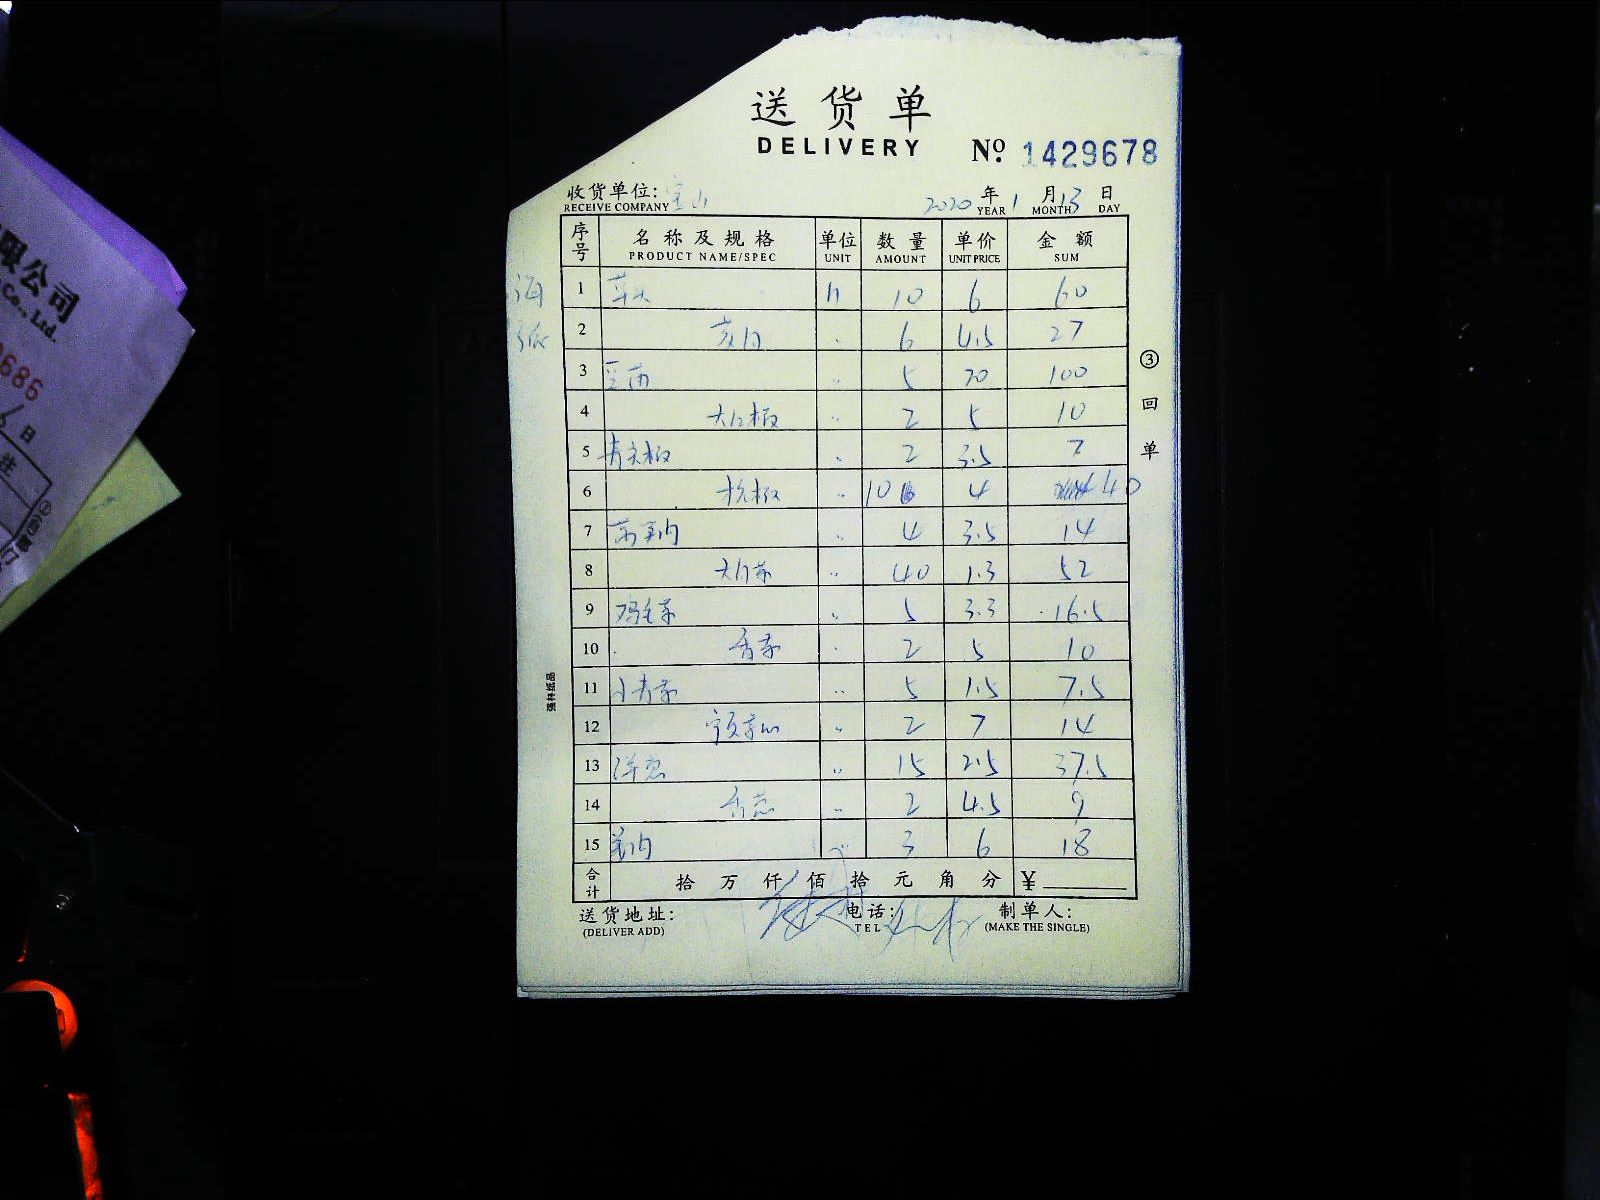 送货单
DELIVERY
No. 1429678
收货单位: 宝山 2020年1月13日
RECEIVE COMPANY YEAR MONTH DAY
序号 名称及规格 单位 数量 单价 金额
PRODUCT NAME/SPEC UNIT AMOUNT UNIT PRICE SUM
1 10 6 60
2 6 4.5 27
3 5 20 100
4 大红椒 2 5 10
5 青尖椒 2 3.5 7
6 杭椒 10 4 40
7 4 3.5 14
8 大白菜 40 1.3 52
9 鸡毛菜 5 3.3 16.5
10 香菜 2 5 10
11 小青菜 5 1.5 7.5
12 2 7 14
13 洋葱 15 2.5 37.5
14 香葱 2 4.5 9
15 3 6 18
合计 拾万仟佰拾元角分 ¥
送货地址: 电话: 制单人:
(DELIVER ADD) TEL (MAKE THE SINGLE)
③回单
强林纸品
限公司
Co., Ltd.
686
6日